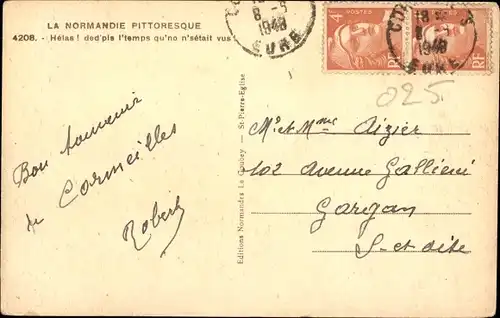 LA NORMANDIE PITTORESQUE
4208. - Hélas ! ded'pis l'temps qu'no n'sétait vus
8 -5
1948
EURE
4F
POSTES
RF
18
1948
EURE
RF
025
Bon souvenir
de Cormeilles
Robert
Editions Normandes Le Goubey — St-Pierre-Eglise
Mr et Mme Aizier
102 avenue Galliéni
Gargan
S-et-Oise